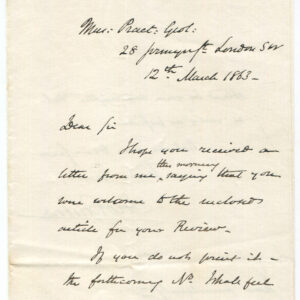 Mus: Pract: Geol:
28 Jermyn St. London SW
12th March 1863 -
Dear Sir
I hope you received a
this morning
letter from me, saying that you
were welcome to the enclosed
article for your Review -
If you do not print it -
the forthcoming No. I shall feel